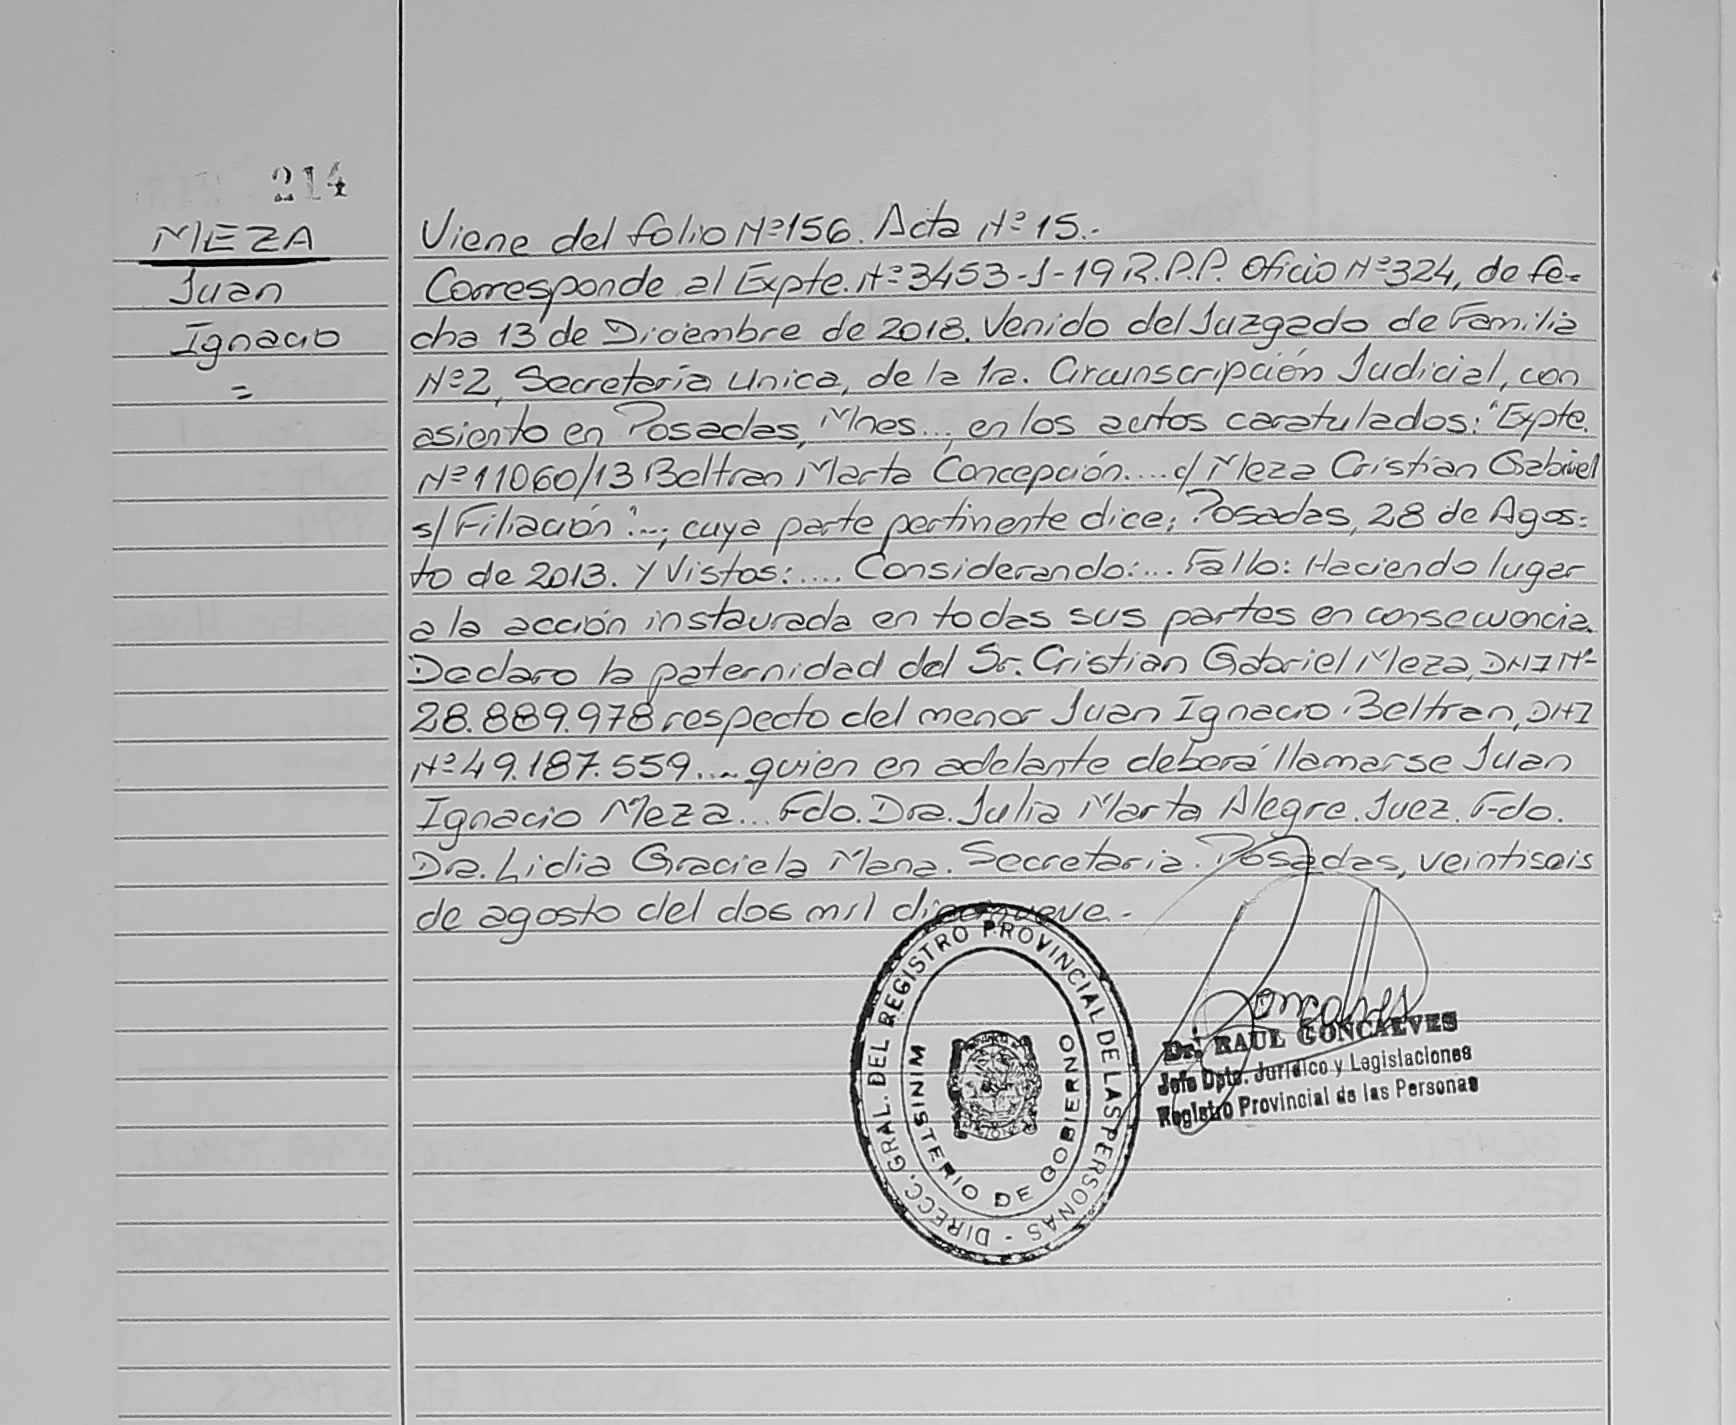 214
MEZA
Juan
Ignacio
=
Viene del folio Nº156. Acta Nº15.-
Corresponde al Expte. Nº3453-J-19 R.P.P. Oficio Nº324, de fe=
cha 13 de Diciembre de 2018. Venido del Juzgado de Familia
Nº2, Secretaría Unica, de la 1ra. Circunscripción Judicial, con
asiento en Posadas, Mnes..., en los autos caratulados: "Expte.
Nº11060/13 Beltran Marta Concepción.... c/ Meza Cristian Gabriel
s/ Filiación"...; cuya parte pertinente dice: Posadas, 28 de Agos=
to de 2013. Y Vistos:.... Considerando:... Fallo: Haciendo lugar
a la acción instaurada en todas sus partes en consecuencia.
Declaro la paternidad del Sr. Cristian Gabriel Meza, DNI Nº
28.889.978 respecto del menor Juan Ignacio Beltran, DNI
Nº49.187.559.... quien en adelante deberá llamarse Juan
Ignacio Meza... Fdo. Dra. Julia Marta Alegre. Juez. Fdo.
Dra. Lidia Graciela Mena. Secretaria. Posadas, veintiseis
de agosto del dos mil diecinueve.-
DIRECC. GRAL. DEL REGISTRO PROVINCIAL DE LAS PERSONAS -
MINISTERIO DE GOBIERNO
Dr. RAUL GONCALVES
Jefe Dpto. Jurídico y Legislaciones
Registro Provincial de las Personas